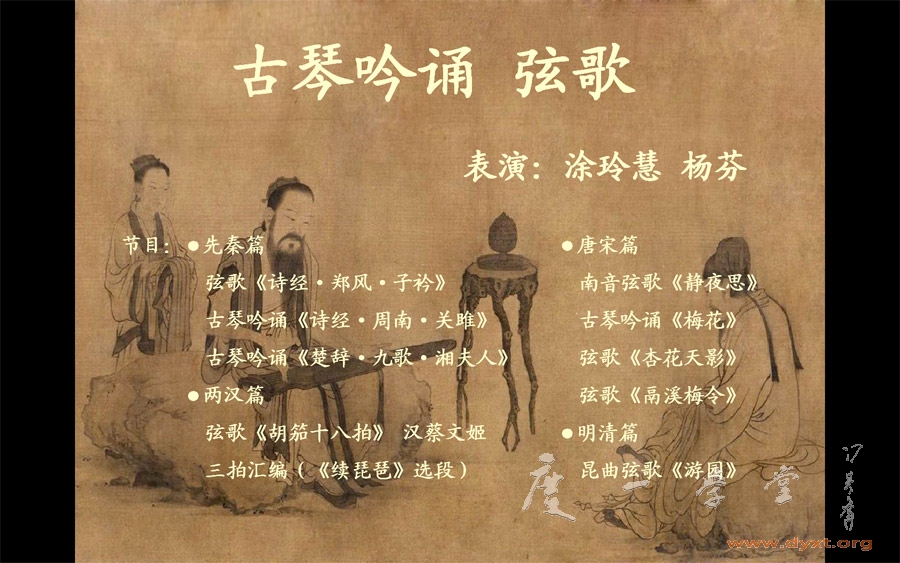 古琴吟诵 弦歌
表演：涂玲慧 杨芬
节目：●先秦篇
弦歌《诗经·郑风·子衿》
古琴吟诵《诗经·周南·关雎》
古琴吟诵《楚辞·九歌·湘夫人》
●两汉篇
弦歌《胡笳十八拍》 汉蔡文姬
三拍汇编（《续琵琶》选段）
●唐宋篇
南音弦歌《静夜思》
古琴吟诵《梅花》
弦歌《杏花天影》
弦歌《鬲溪梅令》
●明清篇
昆曲弦歌《游园》
度一学堂
www.dyxt.org